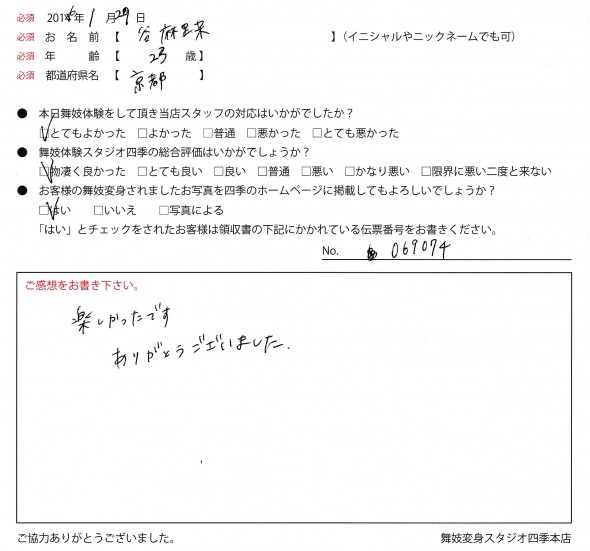 必須 2016年 1 月29日
必須 お 名 前 【 谷 麻里菜 】（イニシャルやニックネームでも可）
必須 年 齢 【 23 歳】
必須 都道府県名 【 京都 】
● 本日舞妓体験をして頂き当店スタッフの対応はいかがでしたか？
☑とてもよかった □よかった □普通 □悪かった □とても悪かった
● 舞妓体験スタジオ四季の総合評価はいかがでしょうか？
☑物凄く良かった □とても良い □良い □普通 □悪い □かなり悪い □限界に悪い二度と来ない
● お客様の舞妓変身されましたお写真を四季のホームページに掲載してもよろしいでしょうか？
☑はい □いいえ □写真による
「はい」とチェックをされたお客様は領収書の下記にかかれている伝票番号をお書きください。
No. 069074
ご感想をお書き下さい。
楽しかったです
ありがとうございました.
ご協力ありがとうございました。 舞妓変身スタジオ四季本店